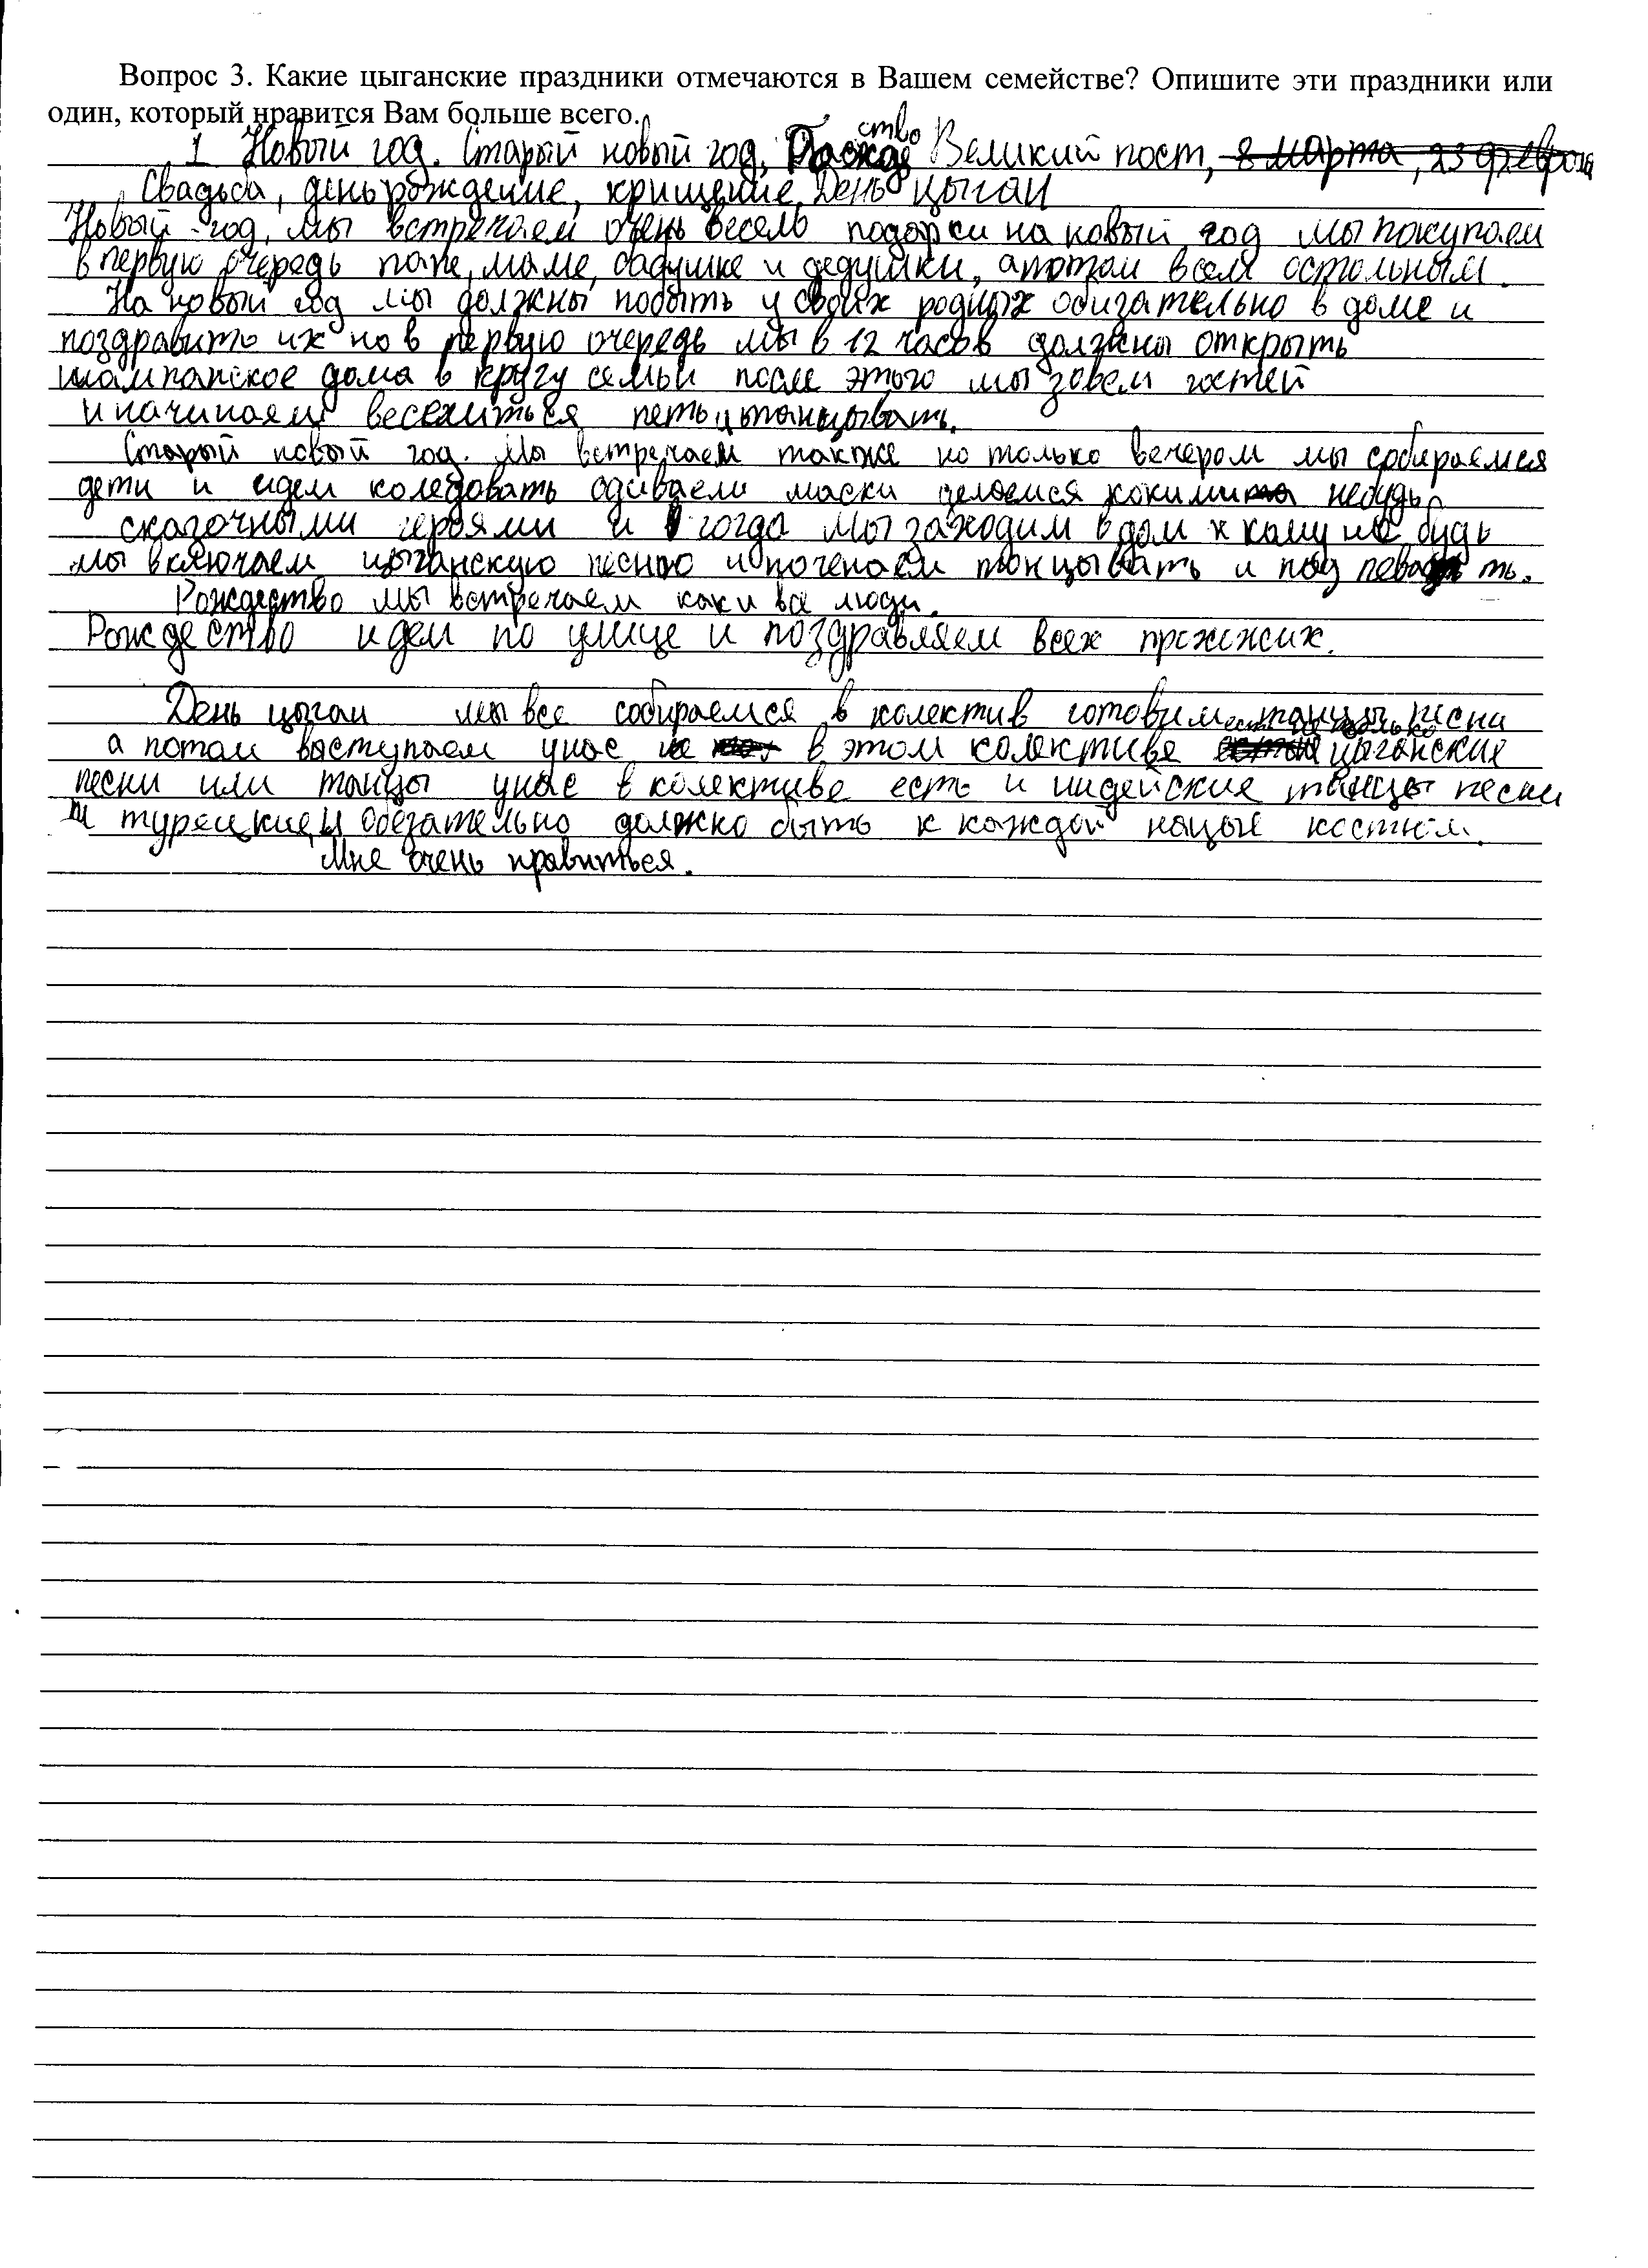 Вопрос 3. Какие цыганские праздники отмечаются в Вашем семействе? Опишите эти праздники или
один, который нравится Вам больше всего.
1 Новый год. Старый новый год, Рожде ство Великий пост, 8 марта, 23 февраля
Свадьба, день рождение, крищение, День цыган
Новый год, мы встречаем очень весело подарки на новый год мы покупаем
в первую очередь папе, маме, бабушке и дедушки, апотом всем остольным.
На новый год мы должны побыть у своих родных обизательно в доме и
поздравить их но в первую очередь мы в 12 часов должны открыть
шампанское дома в кругу семьи после этого мы зовем гостей
и начинаем веселиться петь и танцывать.
Старый новый год. Мы встречаем также но только вечером мы собираемся
дети и идем коледовать одиваем маски делаемся какими небудь
сказочными героями и когда мы заходим в дом к кому не будь
мы включаем цыганскую песню и поченаем танцывать и под певать.
Рождество мы встречаем как и все люди.
Рождество идем по улице и поздравляем всех прожожих.
День цыган мы все собираемся в колектив готовим танцы песни
а потом выступаем унас в этом колективе есть не только цыганские
песни или танцы унас в колективе есть и индейские танцы песни
и турецкие, и обезательно должно быть к каждой нацые костюм.
Мне очень нравиться.